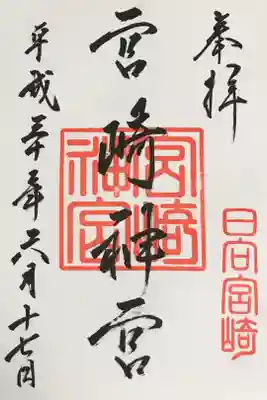 奉拝
日向宮崎
宮崎神宮
宮崎
神宮
平成三十年六月十七日